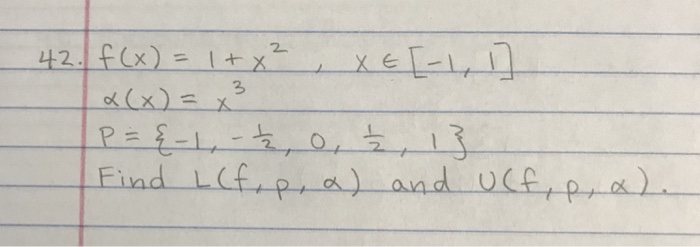 42. f(x) = 1 + x² , x ∈ [-1, 1]
α(x) = x³
P = {-1, -1/2, 0, 1/2, 1}
Find L(f, p, α) and U(f, p, α).